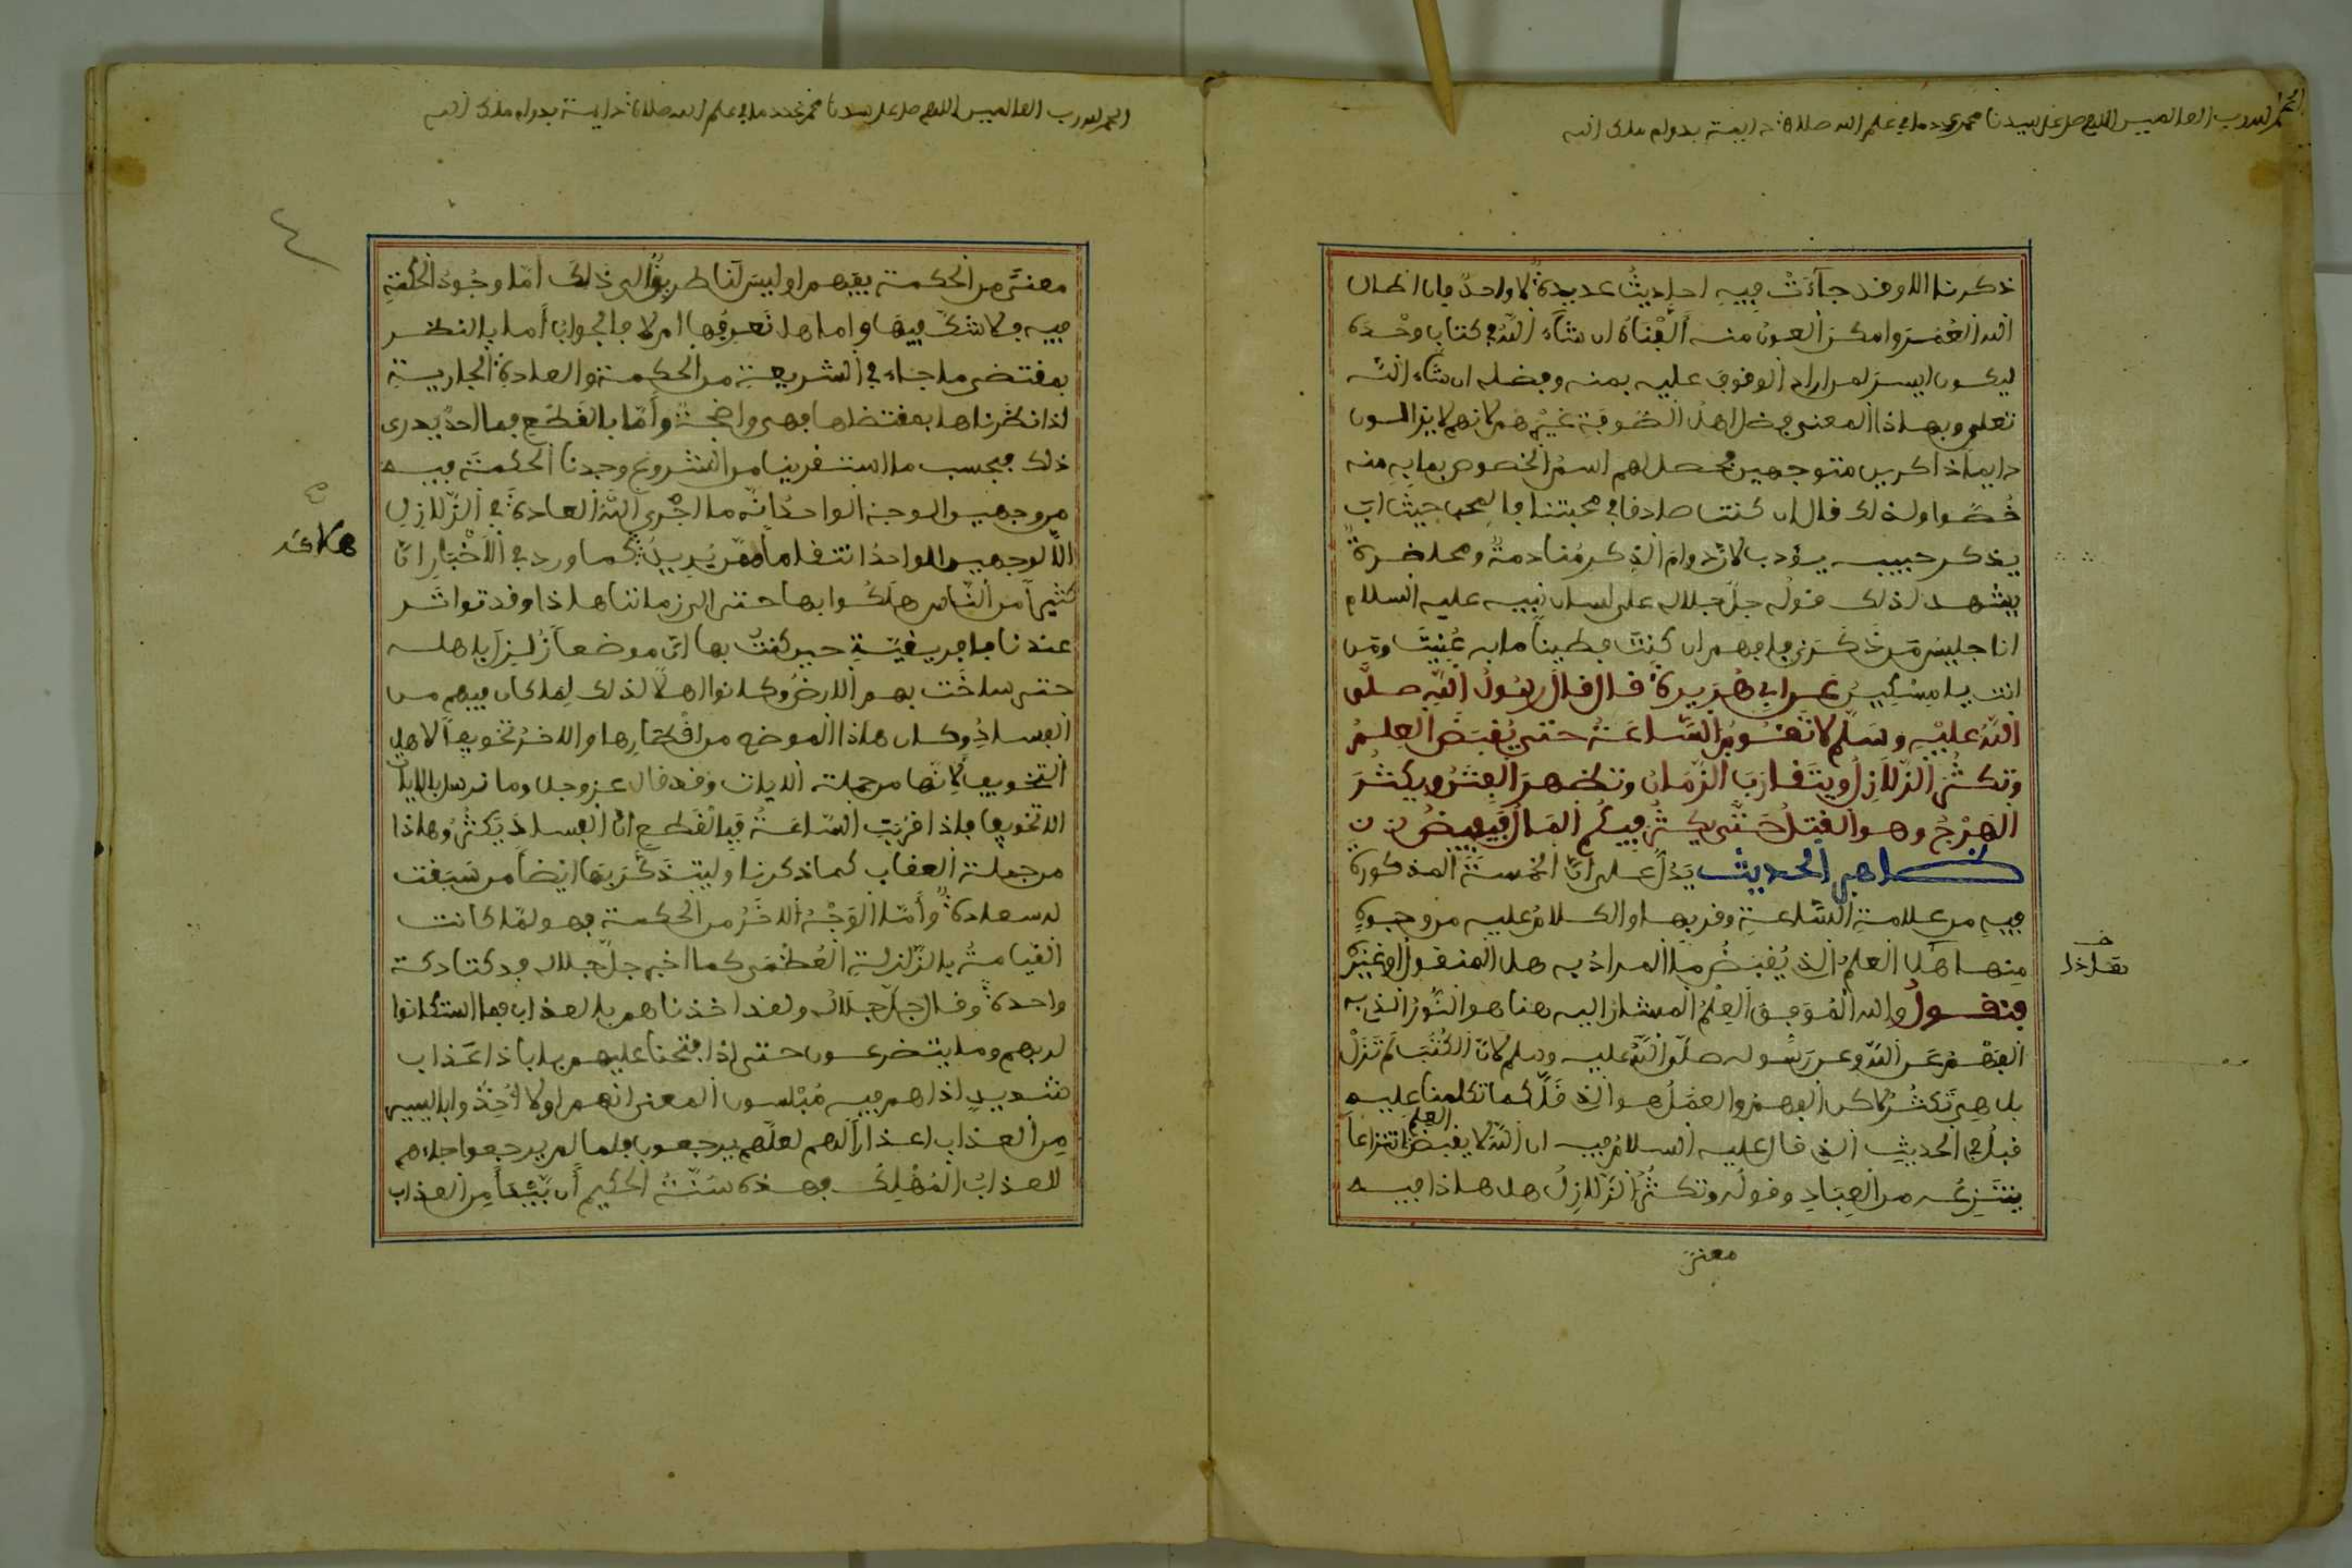 الحمد لله رب العالمين اللهم صل على سيدنا محمد عدد ما في علم الله صلاة دايمة بدوام ملك الله
ذكرنا الا وقد جآءت فيه احاديث عديدة لا واحد فان اطال
الله العمر وامكن العون منه ألفناه ان شآء الله في كتاب وحده
ليكون ايسر لمن اراد الوقوف عليه بمنه وفضله ان شاء الله
تعلى وبهاذا المعنى فضل اهل الصوفة غيرهم لانهم لا يزالون
دايما ذاكرين متوجهين فحصل لهم اسم الخصوص بما به منه
خصوا ولذلك قال ان كنت صادقا في محبتنا فا حيث ات
يذكر حبيبه يؤدب لان دوام الذكر منادمة ومحاضرة
يشهد لذلك قوله جل جلاله على لسان نبيه عليه السلام
انا جليس من ذكرني فافهم ان كنت فطينا ما به عنيت ومن
انت يا مسكين عن ابي هريرة قال قال رسول الله صلى
الله عليه وسلم لا تقوم الساعة حتى يقبض العلم
وتكثر الزلازل ويتقارب الزمان وتظهر الفتن ويكثر
الهرج وهو القتل حتى يكثر فيكم المال فيفيض
ظاهر الحديث يدل على ان الخمسة المذكورة
فيه من علامة الساعة وقربها والكلام عليه من وجوه
منها هل العلم الذي يقبض ما المراد به هل المنقول او غيره
فنقول والله الموفق العلم المشار اليه هنا هو النور الذي به
الفهم عن الله وعن رسوله صلى الله عليه وسلم لان الكتب لم تزل
بل هي تكثر لاكن الفهم والعمل هو الذي قل كما تكلمنا عليه
قبل في الحديث الذي قال عليه السلام فيه ان الله لا يقبض العلم انتزاعا
ينتزعه من العباد وقوله وتكثر الزلازل هل هاذا فيه
معنى
الحمد لله رب العالمين اللهم صل على سيدنا محمد عدد ما في علم الله صلاة دايمة بدوام ملك الله
٤
معنى من الحكمة يفهم او ليس لنا طريق الى ذلك أما وجود الحكمة
فيه فلا شك فيها واما هل نعرفها ام لا فالجواب أما بالنظر
بمقتضى ما جاء في الشريعة من الحكمة والعادة الجارية
اذا نظرناها بمقتضاها فهي واضحة وأما بالقطع فما احد يدرى
ذلك فبحسب ما استقرينا من الشروع وجدنا الحكمة فيه
من وجهين الوجه الواحد انه ما اجرى الله العادة في الزلازل
الا لوجهين الواحد انتقاما ممن يريد كما ورد في الأخبار ان
كثيرا من الناس هلكوا بها حتى الى زماننا هاذا وقد تواتر
عندنا بافريقية حين كنت بها ان موضعا زلزل باهله
حتى ساخت بهم الارض وكانوا اهلا لذلك لما كان فيهم من
الفساد وكان هاذا الموضع من اقطارها والاخر تخويفا لاهل
التخويف لانها من جملة الايات وقد قال عز وجل وما نرسل بالايات
الا تخويفا فاذا قربت الساعة فبالقطع ان الفساد يكثر وهاذا
من جملة العقاب كما ذكرنا وليتذكر بها ايضا من سبقت
له سعادة وأما الوجه الاخر من الحكمة فهو لما كانت
القيامة بالزلزلة العظمى كما اخبر جل جلاله فدكتا دكة
واحدة وقال جل جلاله ولقد اخذناهم بالعذاب فما استكانوا
لربهم وما يتضرعون حتى اذا فتحنا عليهم بابا ذا عذاب
شديد اذا هم فيه مبلسون المعنى انهم اولا اخذوا باليسير
من العذاب اعذارا لهم لعلهم يرجعون فلما لم يرجعوا جاءهم
العذاب المهلك فهذه سنة الحكيم أن يبدأ من العذاب